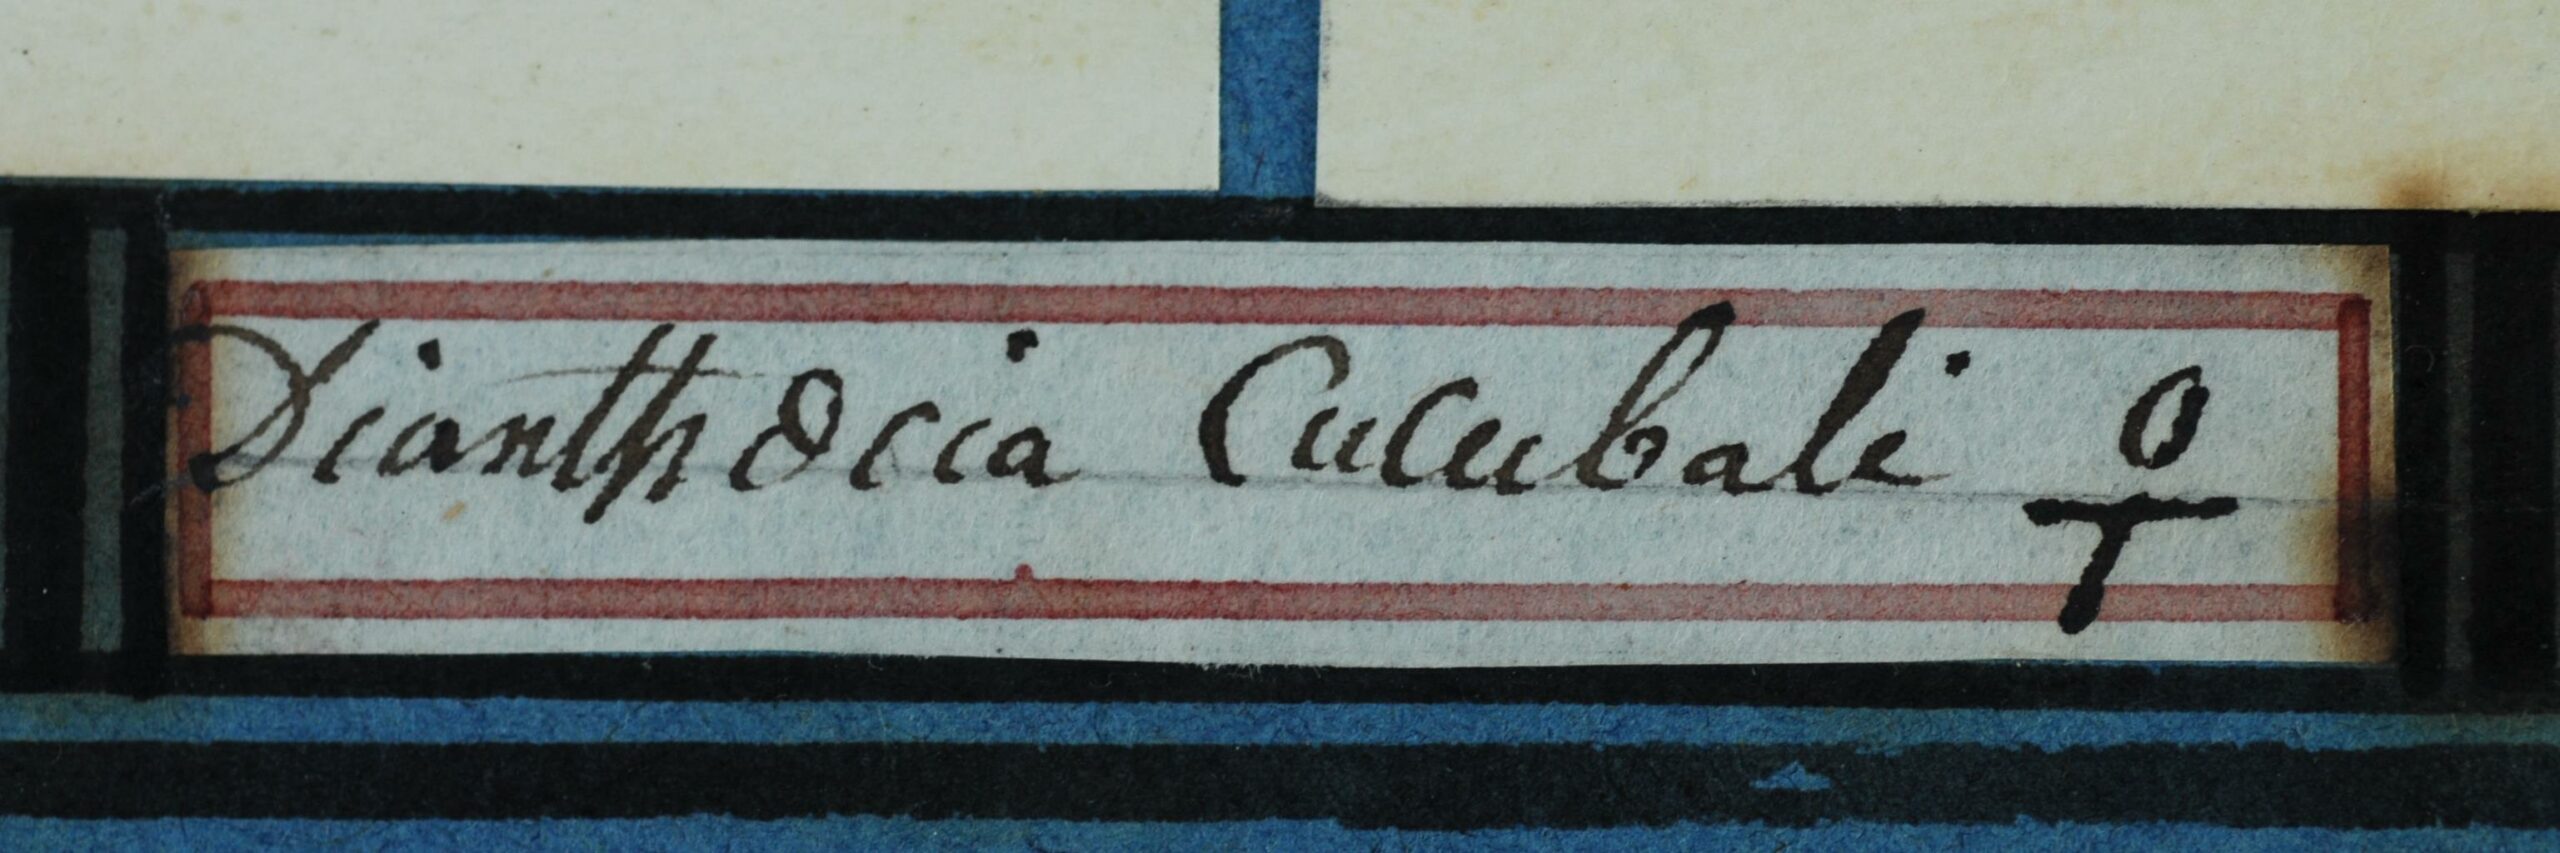 Dianthœcia Cucubali ♀